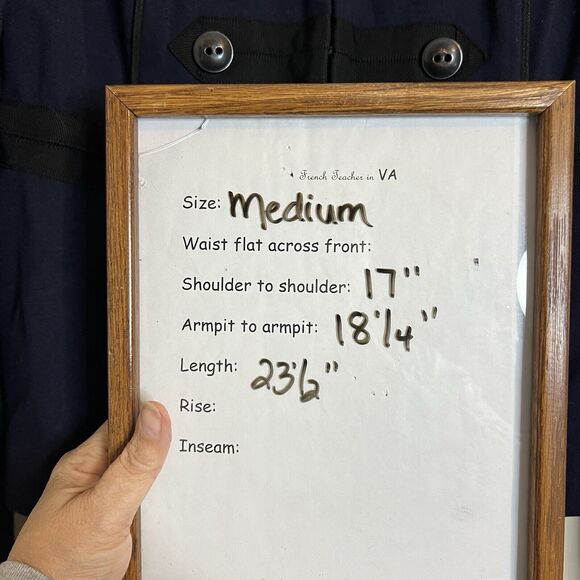 French Teacher in VA
Size: Medium
Waist flat across front:
Shoulder to shoulder: 17"
Armpit to armpit: 18 1/4"
Length: 23 1/2"
Rise:
Inseam: